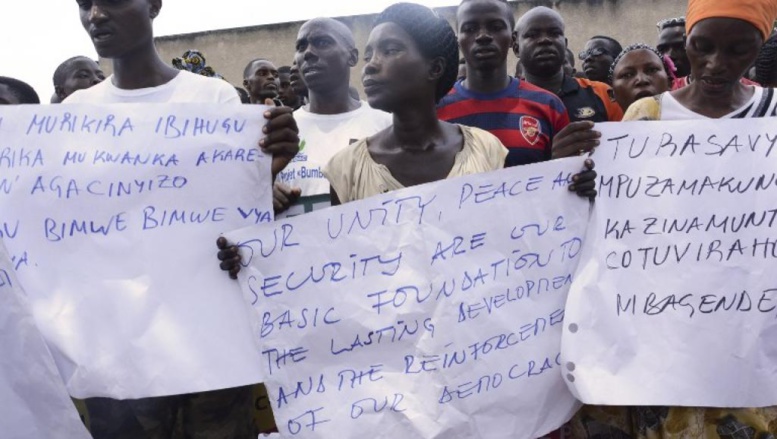 MURIKIRA IBIHUGU
RIKA MU KWANKA AKARE-
N' AGACINYIZO
BIMWE BIMWE VYA
OUR UNITY, PEACE A
SECURITY ARE OUR
BASIC FOUNDATION TO
THE LASTING DEVELOPMEN
AND THE REINFORCEME
OF OUR DEMOCRAC
TURASAVY
MPUZAMAKUNG
KAZINAMUNT
COTUVIRAHO
MBAGENDE
Projet «Bumb
Arsenal